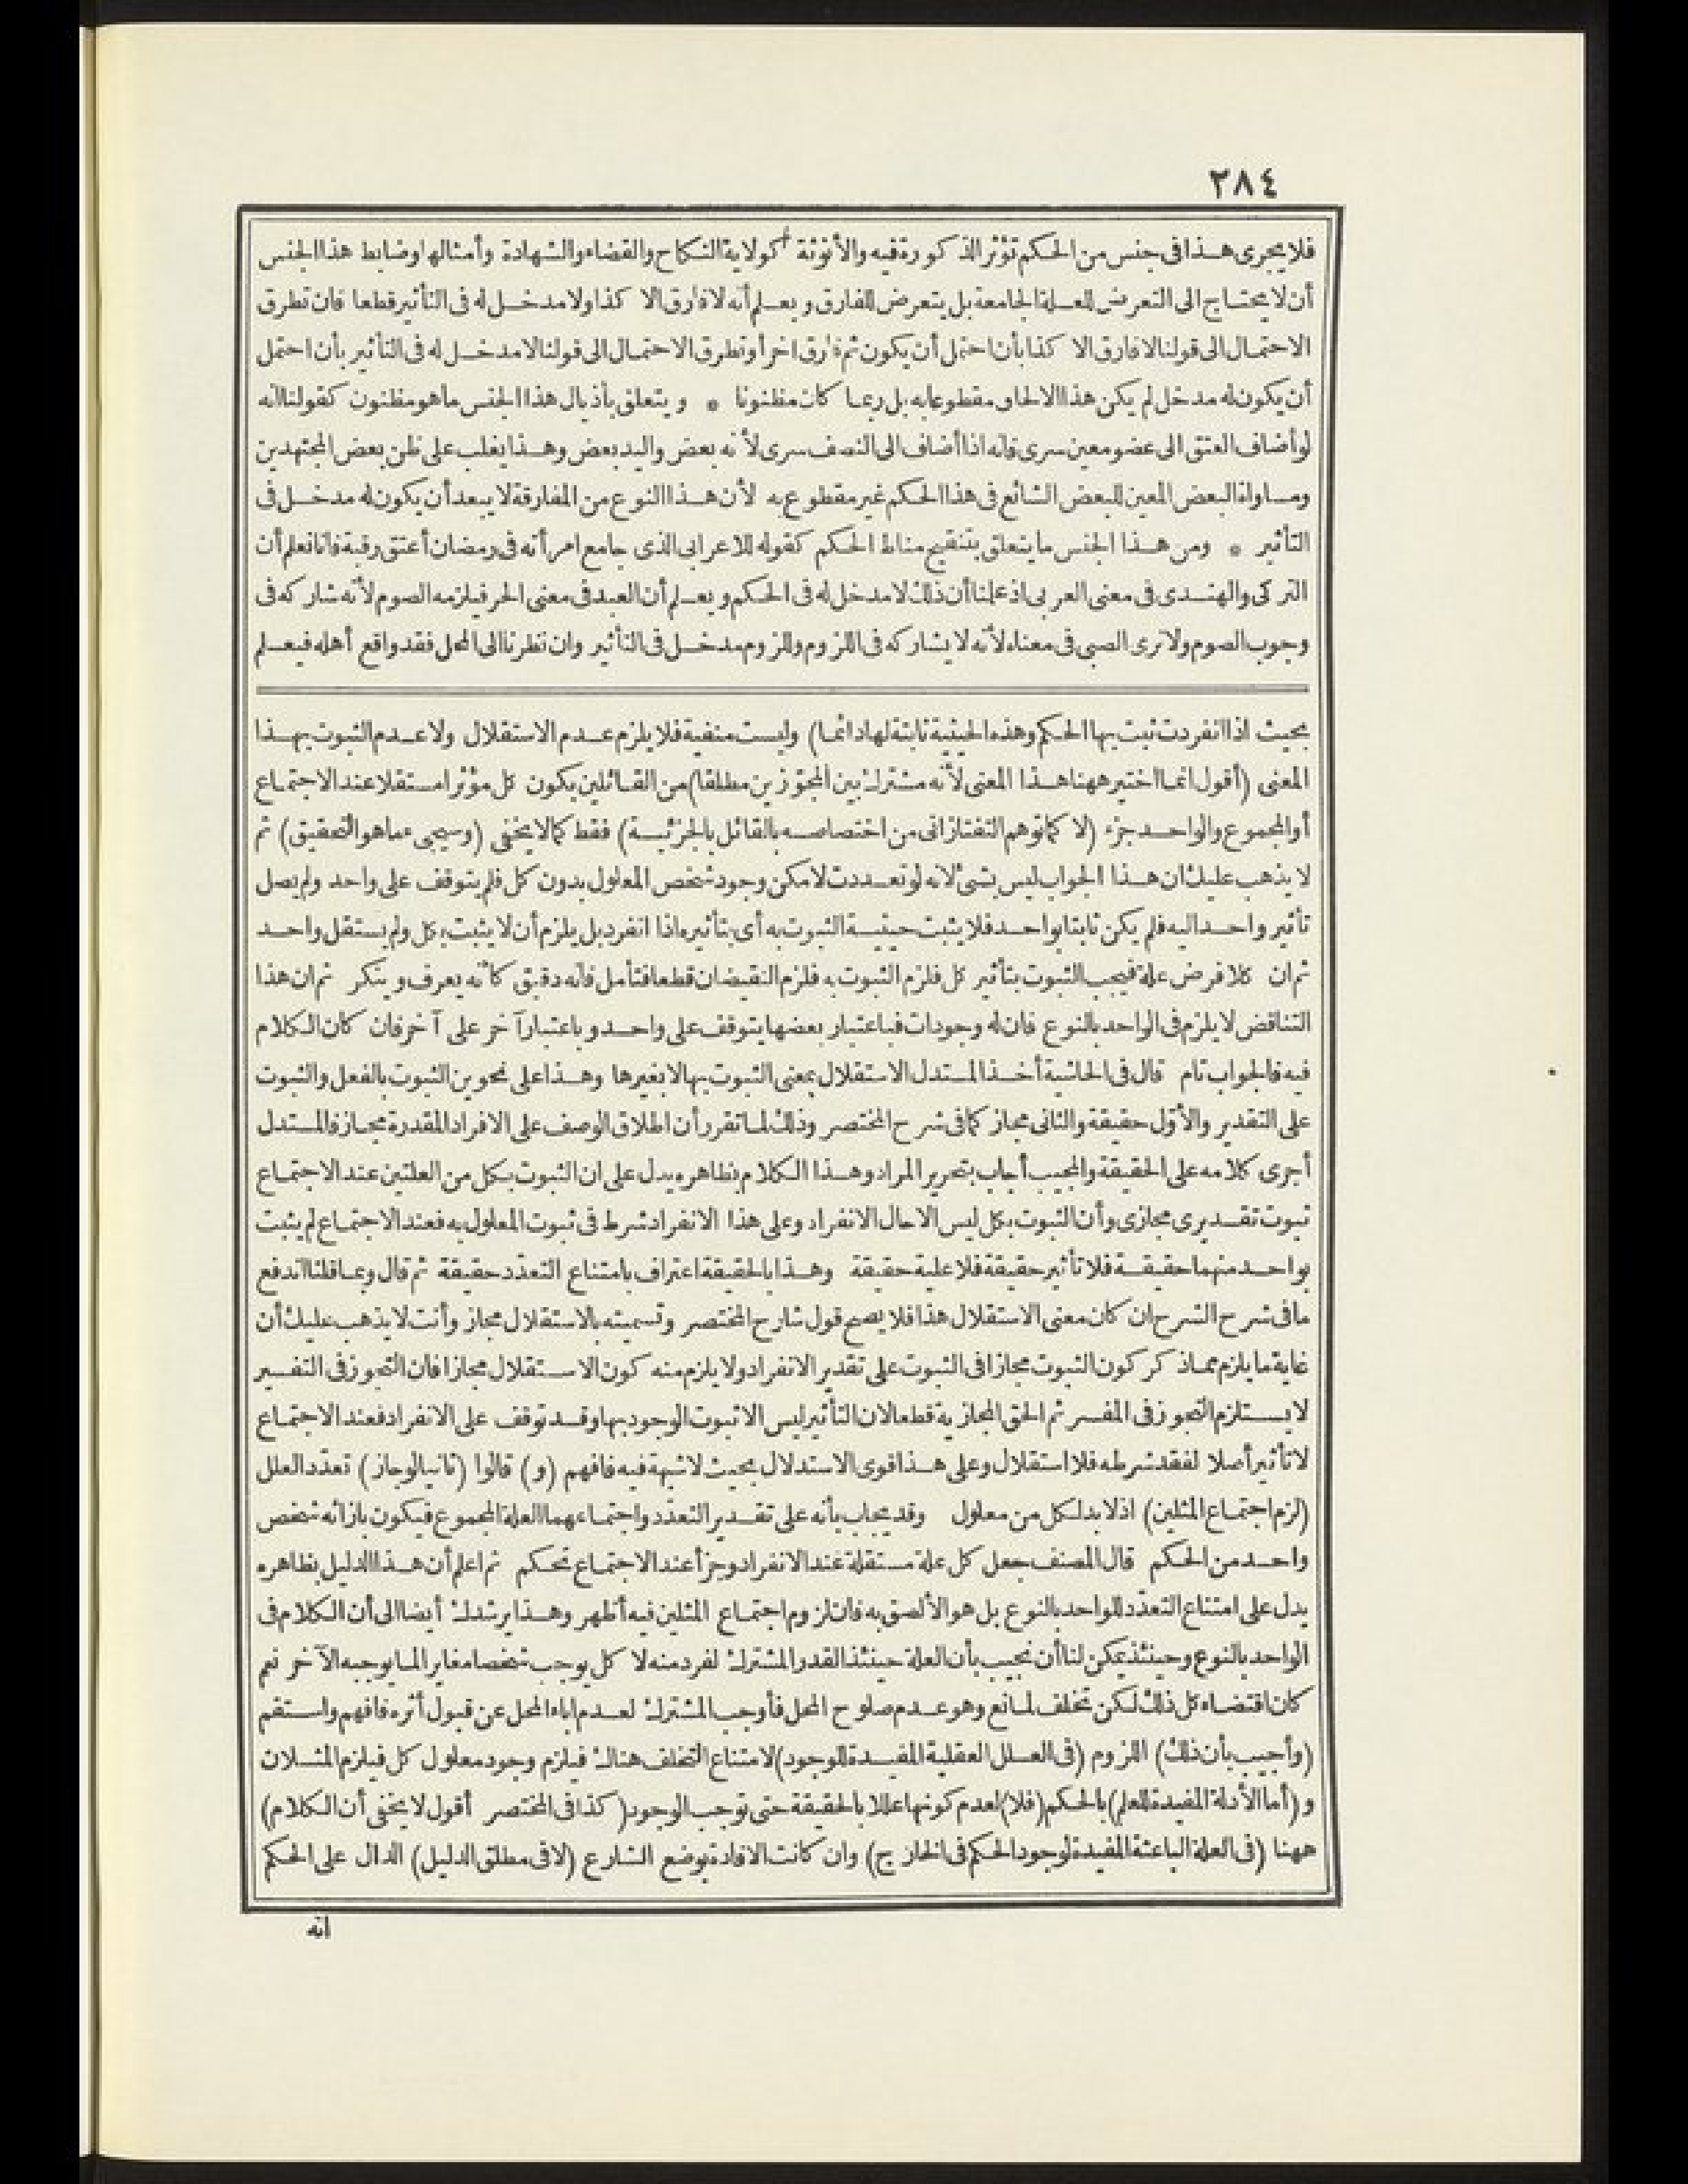 ٢٨٤
فلا يجرى هذا فى جنس من الحكم تؤثر الذكورة فيه والأنوثة كولاية النكاح والقضاء والشهادة وأمثالها وضابط هذا الجنس
أن لا يحتاج الى التعرض للعلة الجامعة بل يتعرض للفارق ويعلم أنه لا فارق الا كذا ولا مدخل له فى التأثير قطعا فان تطرق
الاحتمال الى قولنا لا فارق الا كذا بأن احتمل أن يكون ثم فارق اخر أو تطرق الاحتمال الى قولنا لا مدخل له فى التأثير بأن احتمل
أن يكون له مدخل لم يكن هذا الالحاق مقطوعا به بل ربما كان مظنونا * ويتعلق بأذيال هذا الجنس ما هو مظنون كقولنا انه
لو أضاف العتق الى عضو معين سرى فانه اذا أضاف الى النصف سرى لأنه بعض واليد بعض وهذا يغلب على ظن بعض المجتهدين
ومساواة البعض المعين للبعض الشائع فى هذا الحكم غير مقطوع به لأن هذا النوع من المفارقة لا يبعد أن يكون له مدخل فى
التأثير * ومن هذا الجنس ما يتعلق بتنقيح مناط الحكم كقوله للاعرابى الذى جامع امرأته فى رمضان أعتق رقبة فانا نعلم أن
التركى والهندى فى معنى العربى اذ علمنا أن ذلك لا مدخل له فى الحكم ويعلم أن العبد فى معنى الحر فيلزمه الصوم لأنه شاركه فى
وجوب الصوم ولا نرى الصبى فى معناه لأنه لا يشاركه فى اللزوم وللزوم مدخل فى التأثير وان نظرنا الى المحل فقد واقع أهله فيعلم
بحيث اذا انفردت ثبت بها الحكم وهذه الحيثية ثابتة لها دائما) وليست منفية فلا يلزم عدم الاستقلال ولا عدم الثبوت بهذا
المعنى (أقول انما اختير ههنا هذا المعنى لأنه مشترك بين المجوّزين مطلقا) من القائلين بكون كل مؤثر امستقلا عند الاجتماع
أو المجموع والواحد جزء (لا كما توهم التفتازانى من اختصاصه بالقائل بالجزئية) فقط كما لا يخفى (وسيجىء ما هو التحقيق) ثم
لا يذهب عليك ان هذا الجواب ليس بشئ لانه لو تعددت لا مكن وجود شخص المعلول بدون كل فلم يتوقف على واحد ولم يصل
تأثير واحد اليه فلم يكن ثابتا بواحد فلا يثبت حيثية الثبوت به أى بتأثيره اذا انفرد بل يلزم أن لا يثبت بكل ولم يستقل واحد
ثم ان كلا فرض علة فيجب الثبوت بتأثير كل فلزم الثبوت به فلزم النقيضان قطعا فتأمل فانه دقيق كأنه يعرف وينكر ثم ان هذا
التناقض لا يلزم فى الواحد بالنوع فان له وجودات فباعتبار بعضها يتوقف على واحد وباعتبار آخر على آخر فان كان الكلام
فيه فالجواب تام قال فى الحاشية أخذ المستدل الاستقلال بمعنى الثبوت بها لا بغيرها وهذا على نحوين الثبوت بالفعل والثبوت
على التقدير والأوّل حقيقة والثانى مجاز كما فى شرح المختصر وذلك لما تقرر أن اطلاق الوصف على الافراد المقدرة مجاز فالمستدل
أجرى كلامه على الحقيقة والمجيب أجاب بتحرير المراد وهذا الكلام بظاهره يدل على ان الثبوت بكل من العلتين عند الاجتماع
ثبوت تقديرى مجازى وأن الثبوت بكل ليس الا حال الانفراد وعلى هذا الانفراد شرط فى ثبوت المعلول به فعند الاجتماع لم يثبت
بواحد منهما حقيقة فلا تأثير حقيقة فلا علية حقيقة وهذا بالحقيقة اعتراف بامتناع التعدّد حقيقة ثم قال وبما قلنا اندفع
ما فى شرح الشرح ان كان معنى الاستقلال هذا فلا يصح قول شارح المختصر وتسميته بالاستقلال مجاز وأنت لا يذهب عليك أن
غاية ما يلزم مما ذكر كون الثبوت مجازا فى الثبوت على تقدير الانفراد ولا يلزم منه كون الاستقلال مجازا فان التجوز فى التفسير
لا يستلزم التجوز فى المفسر ثم الحق المجازية قطعا لان التأثير ليس الا ثبوت الوجود بها وقد توقف على الانفراد فعند الاجتماع
لا تأثير أصلا لفقد شرطه فلا استقلال وعلى هذا قوى الاستدلال بحيث لا شبهة فيه فافهم (و) قالوا (ثانيا لو جاز) تعدّد العلل
(لزم اجتماع المثلين) اذ لا بد لكل من معلول وقد يجاب بأنه على تقدير التعدّد واجتماعهما العلة المجموع فيكون بازائه شخص
واحد من الحكم قال المصنف جعل كل علة مستقلة عند الانفراد وجزأ عند الاجتماع تحكم ثم اعلم أن هذا الدليل بظاهره
يدل على امتناع التعدّد للواحد بالنوع بل هو الألصق به فان لزوم اجتماع المثلين فيه أظهر وهذا يرشدك أيضا الى أن الكلام فى
الواحد بالنوع وحينئذ يمكن لنا أن نجيب بأن العلة حينئذ القدر المشترك لفرد منه لا كل يوجب شخصا مغايرا لما يوجبه الآخر نعم
كان اقتضاء كل ذلك لكن تخلف لمانع وهو عدم صلوح المحل فأوجب المشترك لعدم اباء المحل عن قبول أثره فافهم واستقم
(وأجيب بأن ذلك) اللزوم (فى العلل العقلية المفيدة للوجود) لامتناع التخلف هناك فيلزم وجود معلول كل فيلزم المثلان
و (أما الأدلة المفيدة للعلم) بالحكم (فلا) لعدم كونها عللا بالحقيقة حتى توجب الوجود (كذا فى المختصر أقول لا يخفى أن الكلام)
ههنا (فى العلة الباعثة المفيدة لوجود الحكم فى الخارج) وان كانت الافادة بوضع الشارع (لا فى مطلق الدليل) الدال على الحكم
انه